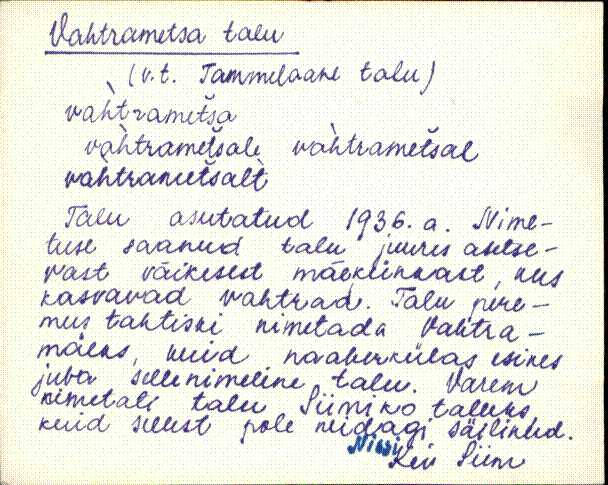 Vahtrametsa talu
(v.t. Tammelaane talu)
vàhtrametša
vàhtrametšale vàhtrametšal
vàhtrametšalt
Talu asutatud 1936. a. Nime-
tuse saanud talu juures asetse-
vast väikesest mäekünkast, kus
kasvavad vahtrad. Talu pere-
mus tahtiski nimetada Vahtra-
mäeks, kuid naaberkülas esines
juba sellenimeline talu. Varem
nimetati talu Siimiko taluks,
kuid sellest pole midagi säilinud.
Nissi
Siim